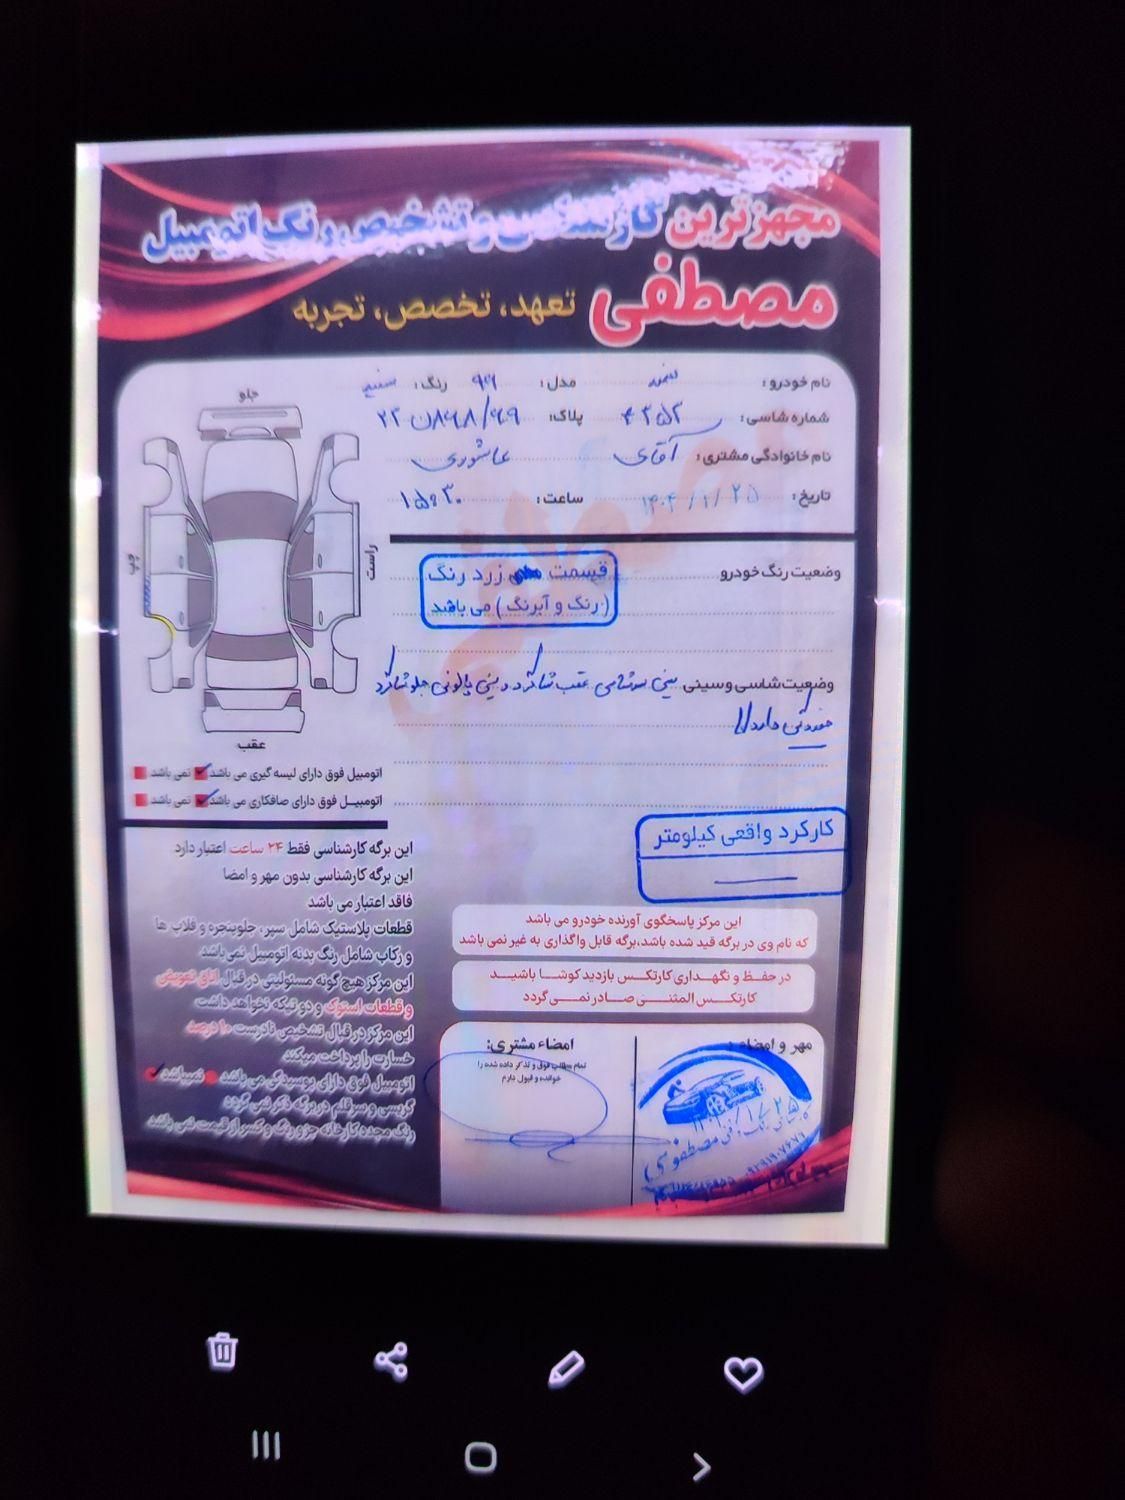 مجهزترین کارشناسی و تشخیص رنگ اتومبیل
مصطفی تعهد، تخصص، تجربه
نام خودرو: سمند مدل: ۹۶ رنگ: سفید
شماره شاسی: پلاک:
نام خانوادگی مشتری: آقای عاشوری
تاریخ: ۱۴۰۴/۱/۲۵ ساعت: ۱۵:۳۰
جلو
چپ
راست
عقب
وضعیت رنگ خودرو
قسمت زرد رنگ
(رنگ و آبرنگ) می باشد
وضعیت شاسی و سینی سینی عقب جلو
خوردگی دارد
اتومبیل فوق دارای لیسه گیری می باشد نمی باشد
اتومبیل فوق دارای صافکاری می باشد نمی باشد
کارکرد واقعی کیلومتر
این برگه کارشناسی فقط ۲۴ ساعت اعتبار دارد
این برگه کارشناسی بدون مهر و امضا
فاقد اعتبار می باشد
قطعات پلاستیک شامل سپر، جلوپنجره و فلاپ ها
و رکاب شامل رنگ بدنه اتومبیل نمی باشد
این مرکز هیچ گونه مسئولیتی در قبال اتاق تعویض
و قطعات استوک و دو تیکه نخواهد داشت
این مرکز در قبال تشخیص نادرست ۱۰ درصد
خسارت را پرداخت میکند
اتومبیل فوق دارای پوسیدگی می باشد نمیباشد
گریسی و سرقلم در برگه ذکر نمی گردد
رنگ مجدد کارخانه جزو رنگ و کسر از قیمت نمی باشد
این مرکز پاسخگوی آورنده خودرو می باشد
که نام وی در برگه قید شده باشد،برگه قابل واگذاری به غیر نمی باشد
در حفظ و نگهداری کارتکس بازدید کوشا باشید
کارتکس المثنی صادر نمی گردد
امضاء مشتری:
تمام مطالب فوق و تذکر داده شده را
خوانده و قبول دارم
مهر و امضاء: